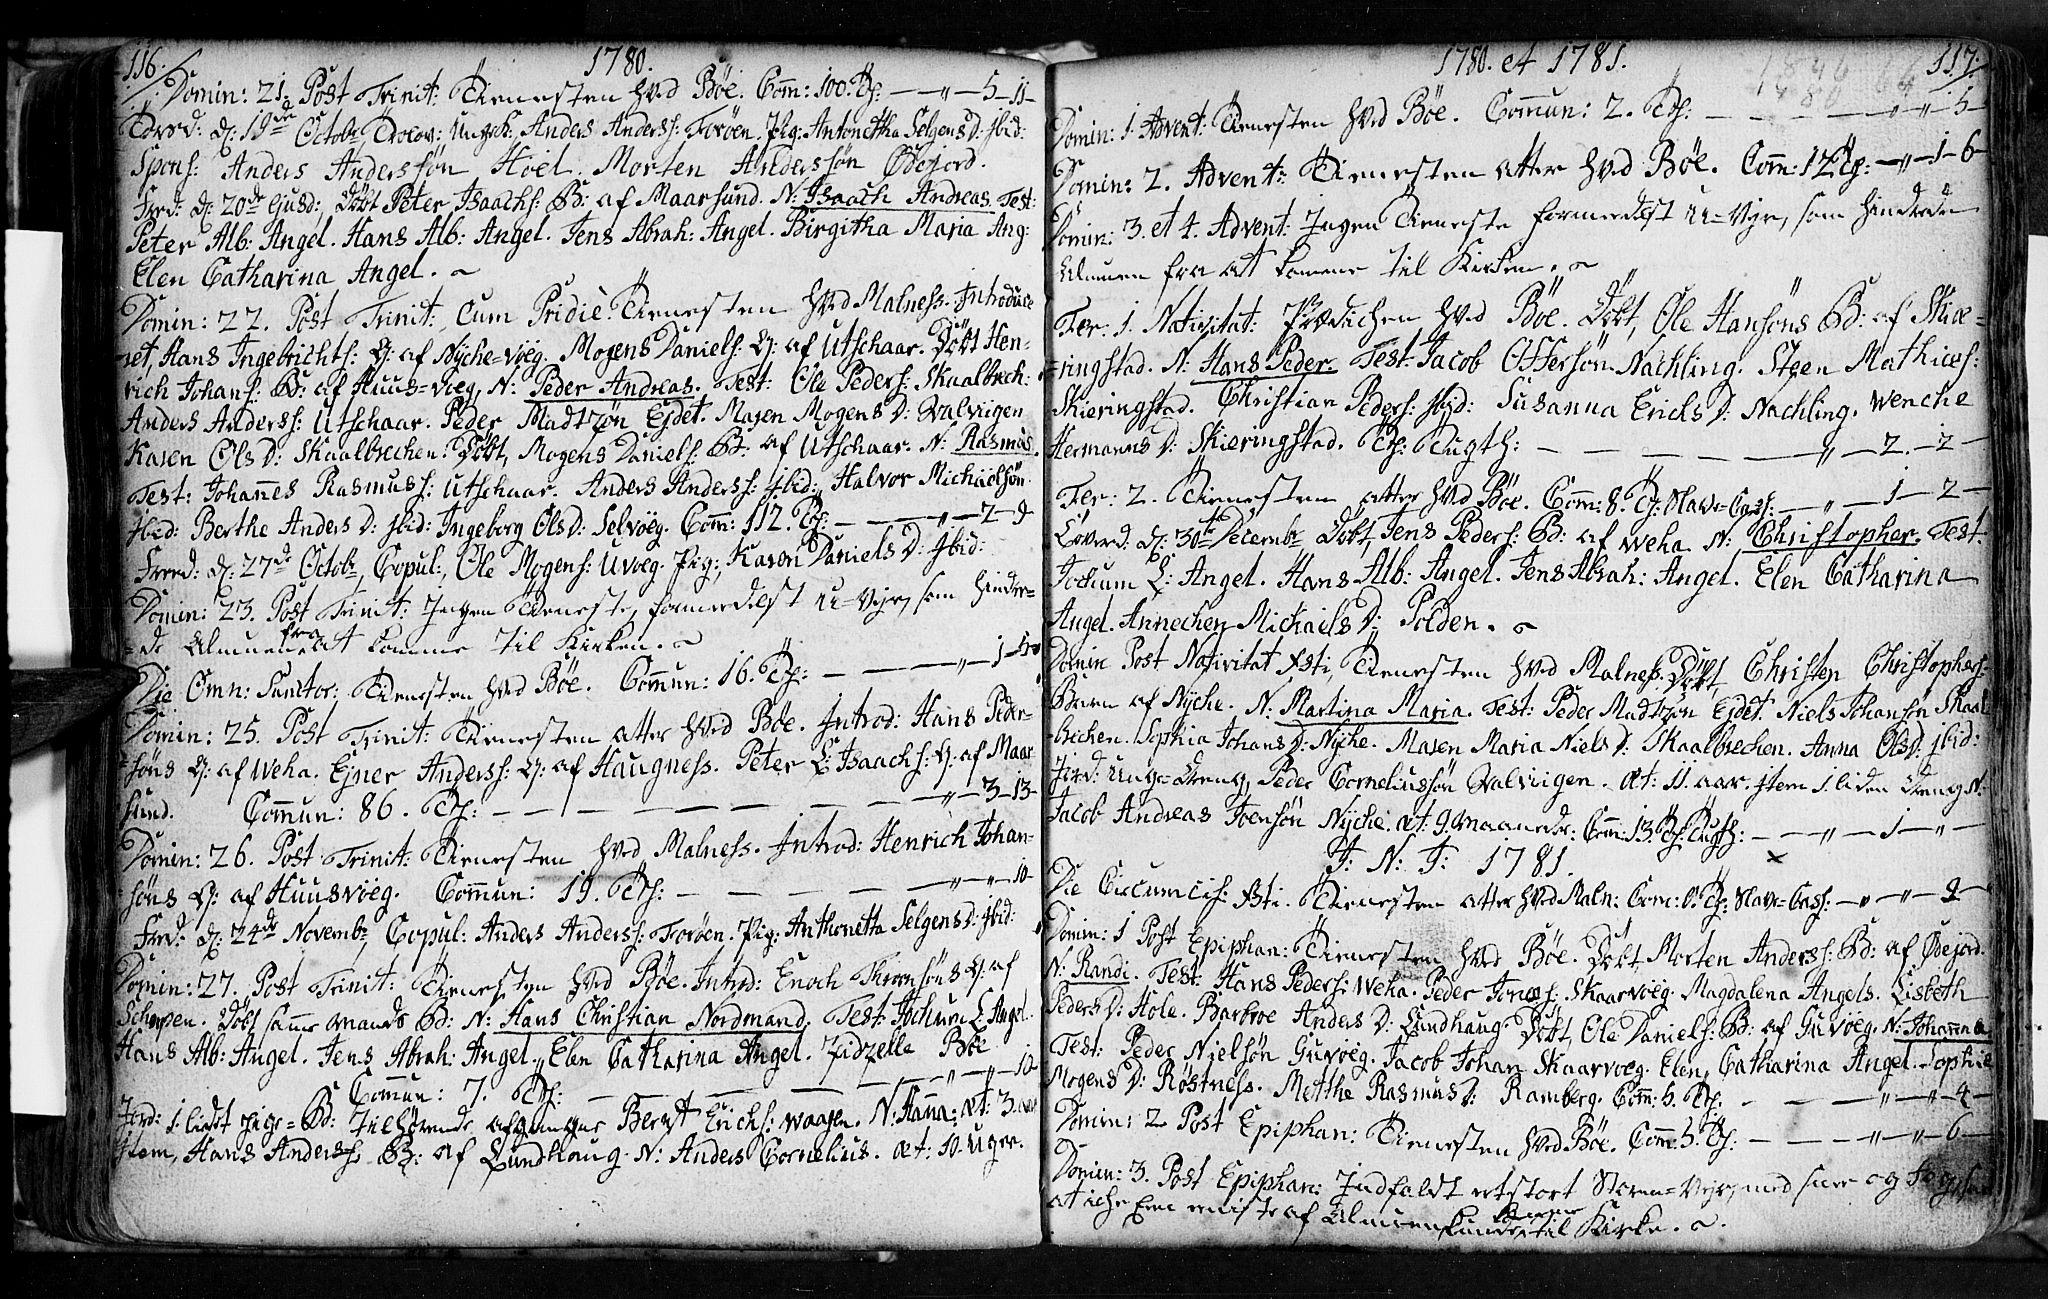 116.
1780.
Domin: 21. Post Trinit: Tienesten hved Böe. Com̄: 100. Ts: — „ — 5 — 11 —
Torsd: d: 19de Octobr, Trolov: Ungk: Anders Anderss: Foröen. Pig: Antonetha Selgens D: jbid:
Spons: Anders Anderssön Hoel. Morten Anderssön Ödejord.
Fred: d: 20de Ejusd:, Döbt Peter Isaachs: B: af Maarsund. N: Isaach Andreas. Test:
Peter Alb: Angel. Hans Alb: Angel. Jens Abrah: Angel. Birgitha Maria Ang:
Elen Catharina Angel.
Domin: 22. Post Trinit: Cum Pridie Tienesten hved Malness. Introduce
ret, Hans Ingebrichts: Q: af Nyche-vog. Mogens Daniels: Q: af Utschaar. Döbt Hen-
rich Johans: B: af Huus-vog, N: Peder Andreas. Test: Ole Peders: Skaalbrech:
Anders Anderss: Utschaar. Peder Madtzøn Ejdet. Maren Mogens D: Valviigen
Karen Ols D: Skaalbrechen. Döbt, Mogens Daniels: B: af Utschaar. N: Rasmus.
Test: Johan̄es Rasmuss: Utschaar. Anders Anderss: jbid: Halvor Michaelsön
jbid: Berthe Anders D: jbid: Ingeborg Ols D: Selvöeg. Com̄: 112. Ts: — „ — 2 — 9
Fred: d: 27de Octobr, Copul:, Ole Mogens: Uvoeg. Pig:, Karen Daniels D: jbid:
Domin: 23. Post Trinit: Ingen Tieneste, formedelst U-Vejr, som hinder-
de Almuen fra at komme til Kirken.
Die Omn: Sanctor: Tienesten hved Böe. Com̄un: 16. Ts: — „ — 1 — 5
Domin: 25. Post Trinit: Tienesten atter hved Böe. Introd: Hans Peder-
söns Q: af Weha. Ejner Anderss: Q: af Haugness. Peter L: Isaachs: Q: af Maar
sund. Com̄un: 86. Ts: — „ — 3 — 13 —
Domin: 26. Post Trinit: Tienesten hved Malness. Introd: Henrich Johan-
söns Q: af Huusvöeg. Com̄un: 19. Ts: — „ — „ — 10
Fred: d: 24de Novembr, Copul: Anders Anderss: Foröen. Pig: Anthonetta Selgens D: jbid:
Domin: 27. Post Trinit: Tienesten hved Böe. Introd: Enoch Thronsöns Q: af
Schorpen. Döbt sam̄e Mands B: N: Hans Christian Nordmand. Test: Jochum L: Angel.
Hans Alb: Angel. Jens Abrah: Angel. Elen Catharina Angel. Zidzelle Böe
Com̄un: 7. Ts: — „ — „ — 12
Jord: 1. lidet pige-B: tilhörende afgangne Bernt Erichs: Waagen. N: Han̄a: æt: 3. aar
Item, Hans Anderss: B: af Lundhaug. N: Anders Cornelius. æt: 10. uger.
1780. et 1781.
117.
Domin: 1. Advent: Tienesten hved Böe. Com̄un: 2. Ts: — „ — „ — 5 —
Domin: 2. Advent: Tienesten atter hved Böe. Com̄: 12 Ts: — „ — 1 — 6 —
Domin: 3. et 4. Advent: Ingen Tieneste formedelst U-Vejr, som hindrede
Almuen fra at komme til Kirken.
Fer: 1. Nativitat: Prædichen hved Böe. Döbt, Ole Hansöns B: af Skie-
ringstad. N: Hans Peder. Test: Jacob Offersön Nachling. Steen Mathiæs:
Skieringstad. Christian Peders: jbid: Susanna Ericks D: Nachling. Wenche
Hermanns D: Skieringstad. Ts: Tugth: — „ — 2 — 2 —
Fer: 2. Tienesten atter hved Böe. Com̄: 8. Ts: Slave-Cass: — „ — 1 — 2 —
Löverd: d: 30te Decembr Döbt, Jens Peders: B: af Weha. N: Christopher. Test:
Jochum L: Angel. Hans Alb: Angel. Jens Abrah: Angel. Elen Catharina
Angel. Annechen Michaels D: Polden.
Domin Post Nativitat Xsti, Tienesten hved Malness. Döbt, Christen Christophers:
Barn af Nyche. N: Martina Maria. Test: Peder Madtzøn Ejdet. Niels Johansön Skaal
brechen. Sophia Johans D: Nyche. Maren Maria Niels D: Skaalbrechen. Anna Ols D: jbid:
Jord: Unge-Dreng, Peder Corneliussön Valviigen. æt: 11. aar. Item 1. liden Dreng N:
Jacob Andreas Joensön Nyche. æt: 9. Maaneder: Com̄: 13. Ts: Tugth: — „ — 1 — „ —
J: N: J: 1781.
Die Circumcis: Xsti. Tienesten atter hved Maln: Com: 0. Ts: Slave-Cass: — „ — „ — 2 —
Domin: 1 Post Epiphan: Tienesten hved Böe. Döbt Morten Anderss: B: af Ödejord.
N: Randi. Test: Hans Peders: Weha. Peder Joriæs: Skaarvoeg. Magdalena Angels. Lisbeth
Peders D: Hole. Barbroe Anders D: Lundhaug. Döbt, Ole Daniels: B: af Guvöeg. N: Johan̄na
Test: Peder Nielsön Guvöeg. Jacob Johan Skaarvoeg. Elen Catharina Angel. Sophie
Mogens D: Röstness. Methe Rasmus D: Ramberg. Com̄: 5. Ts: — „ — „ — 4 —
Domin: 2 Post Epiphan: Tienesten hved Böe. Com̄: 5. Ts: — „ — „ — 6 —
Domin: 3. Post Epiphan: Indfaldt et stort Storm-Vejr, med snee og
at iche Een eeniste af Almuen kunde komme til Kirke.